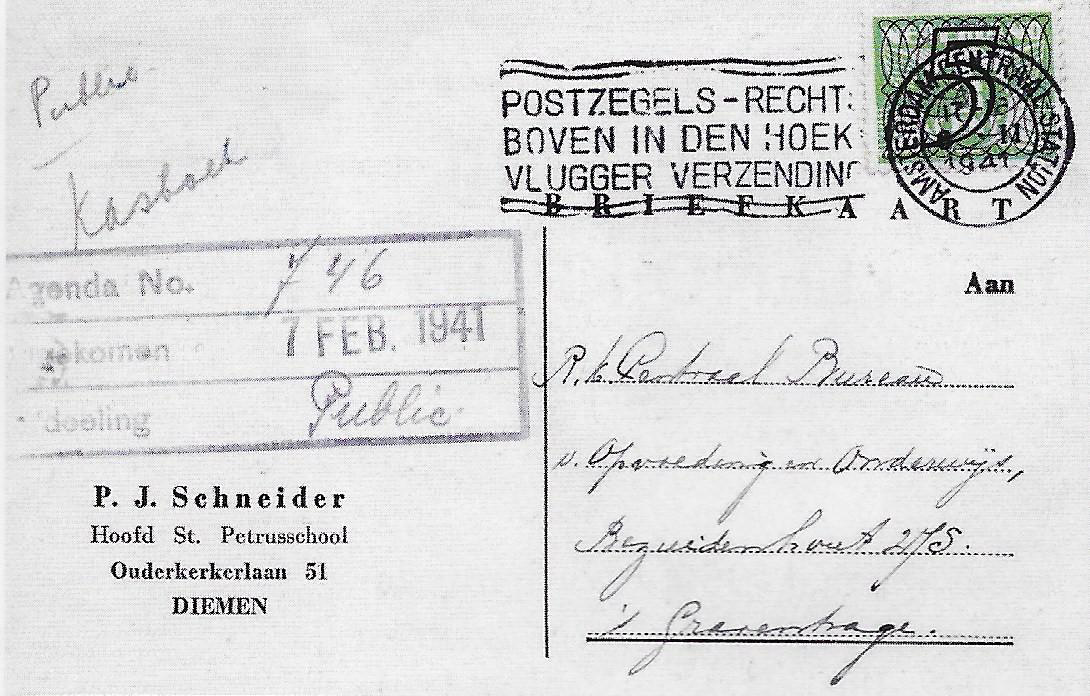 Public
Kasboek
POSTZEGELS-RECHTS
BOVEN IN DEN HOEK
VLUGGER VERZENDING
AMSTERDAM CENTRAAL STATION
1941
BRIEFKAART
Agenda No. 746
7 FEB. 1941
deeling Public.
P. J. Schneider
Hoofd St. Petrusschool
Ouderkerkerlaan 51
DIEMEN
Aan
R.k. Centraal Bureau
v. Opvoeding en Onderwijs,
Bezuidenhout 275.
's Gravenhage.